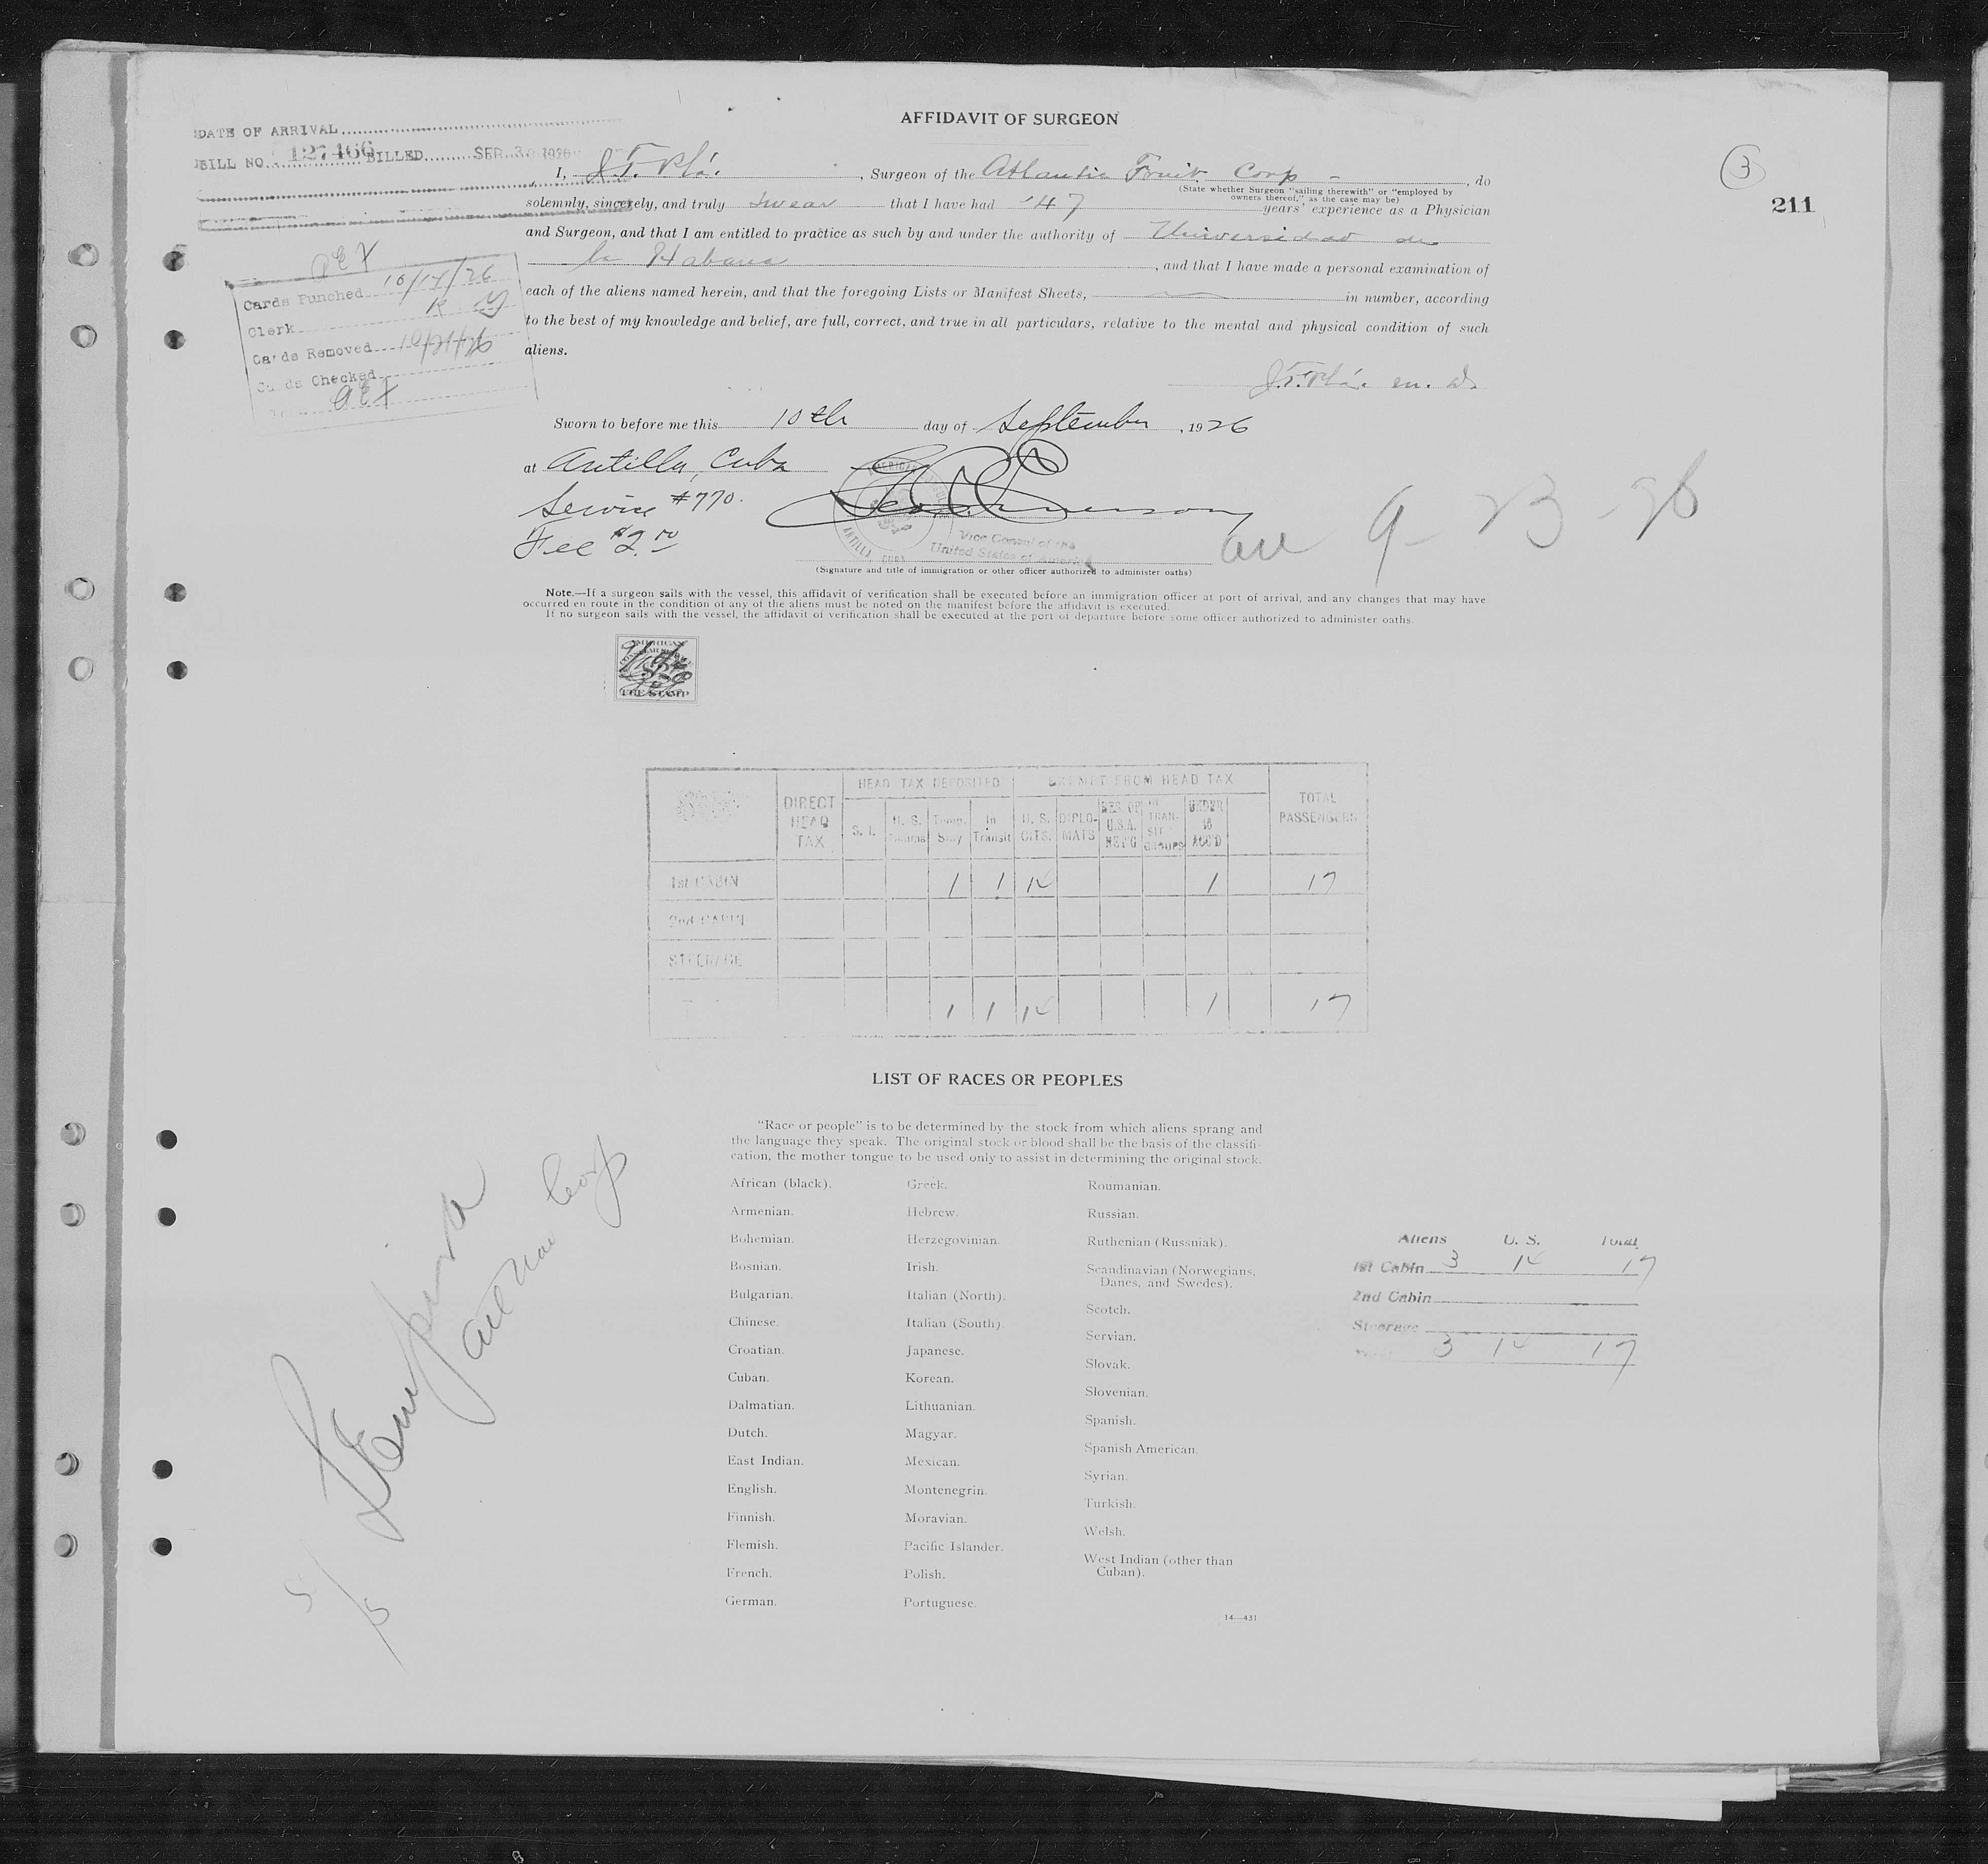 AFFIDAVIT OF SURGEON
DATE OF ARRIVAL
BILL NO. 127466 BILLED SEP 30 1926
3
211
I, J.F. Plá, Surgeon of the Atlantic Fruit Corp - , do
(State whether Surgeon "sailing therewith" or "employed by
owners thereof," as the case may be)
solemnly, sincerely, and truly swear that I have had 47 years' experience as a Physician
and Surgeon, and that I am entitled to practice as such by and under the authority of Universidad de
la Habana , and that I have made a personal examination of
each of the aliens named herein, and that the foregoing Lists or Manifest Sheets, in number, according
to the best of my knowledge and belief, are full, correct, and true in all particulars, relative to the mental and physical condition of such
aliens.
J.F. Plá. m. d.
Cards Punched 10/14/26
Clerk
Cards Removed 10/21/26
Cards Checked
Sworn to before me this 10th day of September , 1926
at Antilla, Cuba
Service #770.
Fee $2.00
AMERICAN
ANTILLA, CUBA
Vice Consul of the
United States of America
arr 9-23-26
(Signature and title of immigration or other officer authorized to administer oaths)
Note.—If a surgeon sails with the vessel, this affidavit of verification shall be executed before an immigration officer at port of arrival, and any changes that may have
occurred en route in the condition of any of the aliens must be noted on the manifest before the affidavit is executed.
If no surgeon sails with the vessel, the affidavit of verification shall be executed at the port of departure before some officer authorized to administer oaths.
AMERICAN
FEE STAMP
HEAD TAX DEPOSITED EXEMPT FROM HEAD TAX
DIRECT HEAD TAX S. I. U. S. Temp. Stay In Transit U. S. CITS. DIPLOMATS RES. OF U.S.A. RET'G IN TRANSIT GROUPS UNDER 16 ACC'D TOTAL PASSENGERS
1st CABIN 1 1 14 1 17
2nd CABIN
STEERAGE
1 1 14 1 17
LIST OF RACES OR PEOPLES
"Race or people" is to be determined by the stock from which aliens sprang and
the language they speak. The original stock or blood shall be the basis of the classifi-
cation, the mother tongue to be used only to assist in determining the original stock.
African (black).
Armenian.
Bohemian.
Bosnian.
Bulgarian.
Chinese.
Croatian.
Cuban.
Dalmatian.
Dutch.
East Indian.
English.
Finnish.
Flemish.
French.
German.
Greek.
Hebrew.
Herzegovinian.
Irish.
Italian (North).
Italian (South).
Japanese.
Korean.
Lithuanian.
Magyar.
Mexican.
Montenegrin.
Moravian.
Pacific Islander.
Polish.
Portuguese.
Roumanian.
Russian.
Ruthenian (Russniak).
Scandinavian (Norwegians,
Danes, and Swedes).
Scotch.
Servian.
Slovak.
Slovenian.
Spanish.
Spanish American.
Syrian.
Turkish.
Welsh.
West Indian (other than
Cuban).
14—431
Aliens U. S. Total
1st Cabin 3 14 17
2nd Cabin
Steerage
3 14 17